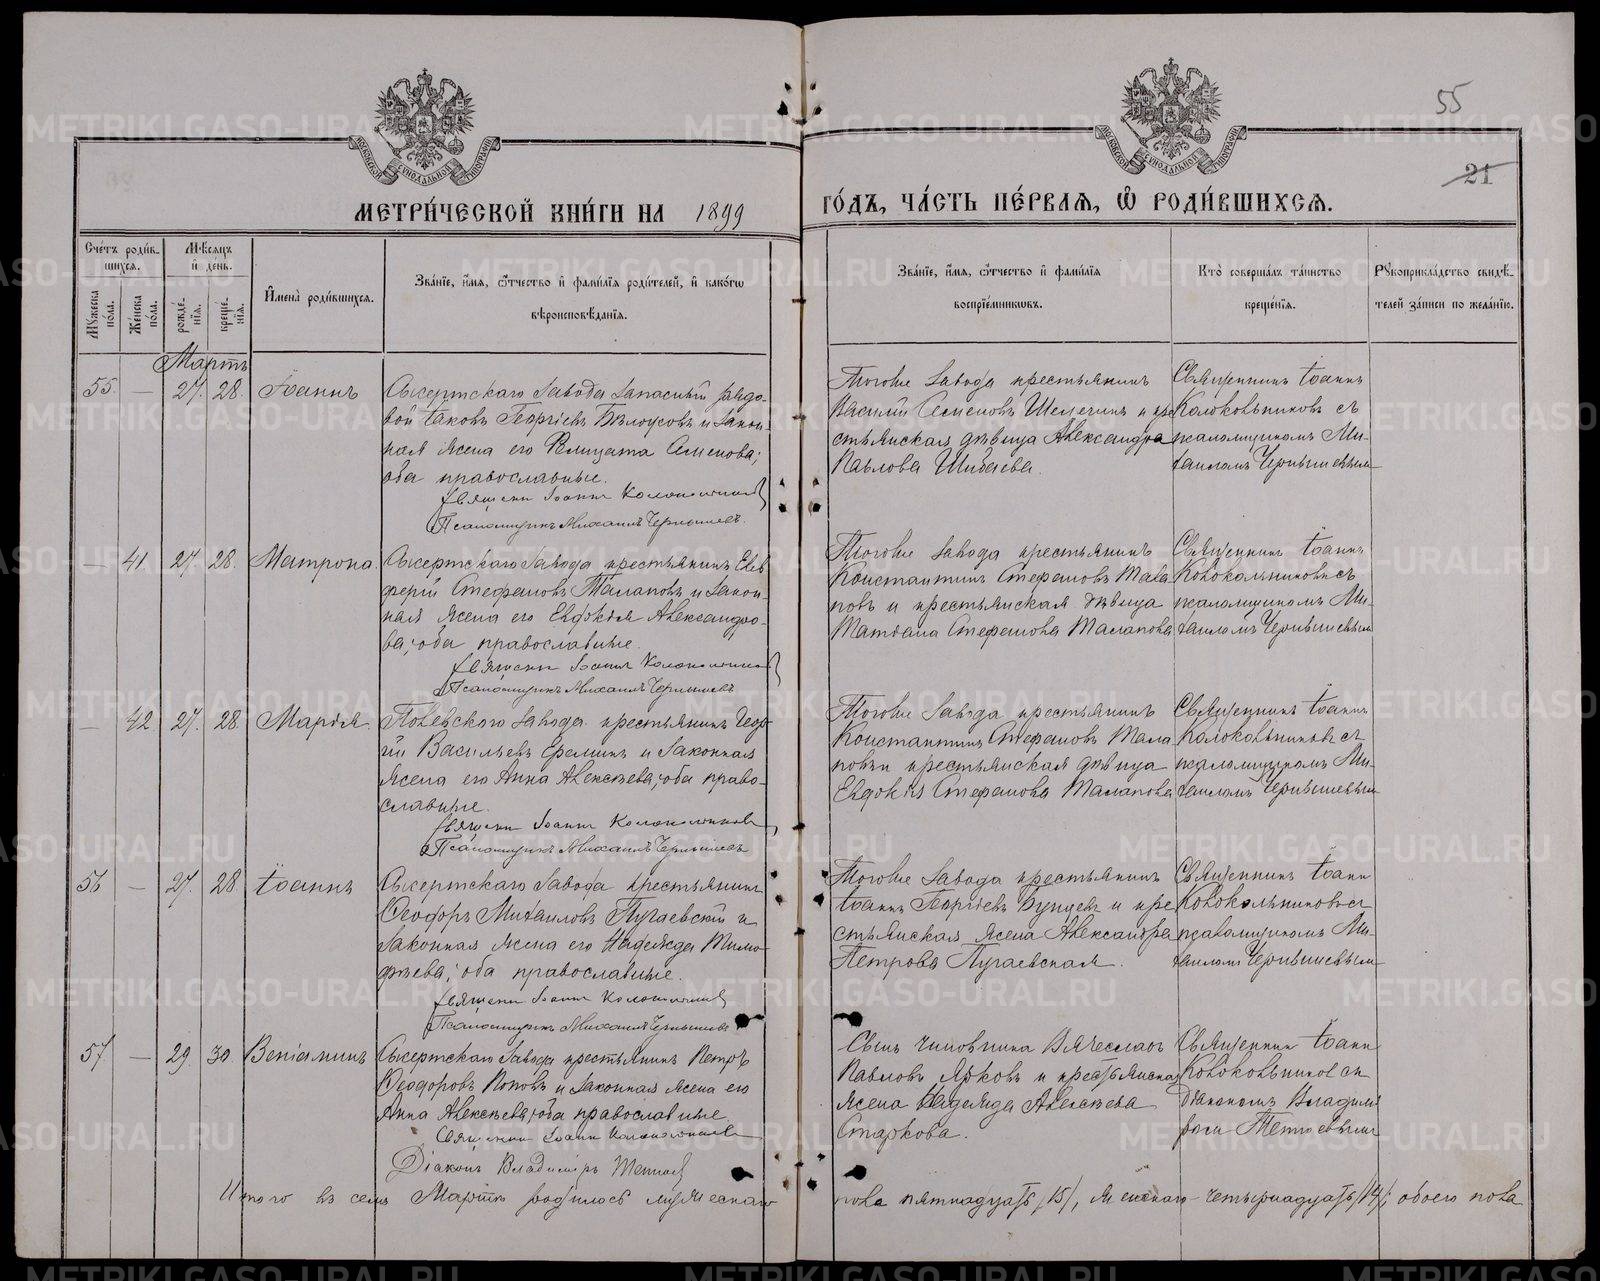 55
21
МОСКОВСКОЙ СѴНОДАЛЬНОЙ ТИПОГРАФІИ
МОСКОВСКОЙ СѴНОДАЛЬНОЙ ТИПОГРАФІИ
МЕТРИ́ЧЕСКОЙ КНИ́ГИ НА 1899
ГО́ДЪ, ЧА́СТЬ ПЕ́РВАѦ, Ѽ РОДИ́ВШИХСѦ.
Сче́тъ роди́вшихсѧ.
Мꙋ́жеска по́ла.
Же́нска по́ла.
Мѣ́сѧцъ и҆ де́нь.
рожде́нїѧ.
креще́нїѧ.
И҆мена̀ роди́вшихсѧ.
Зва́нїе, и҆́мѧ, ѻ҆́тчество и҆ фамѝлїѧ роди́телей, и҆ како́гѡ
вѣроисповѣ́данїѧ.
Зва́нїе, и҆́мѧ, ѻ҆́тчество и҆ фамѝлїѧ
воспрїе́мникѡвъ.
Кто̀ соверша́лъ та́инство
креще́нїѧ.
Рꙋкоприкла́дство свидѣ́-
телей за́писи по жела́нїю.
Мартъ
55. — 27. 28. Іоаннъ
Сысертскаго Завода запасный рядо-
вой Іаковъ Георгіевъ Бѣлоусовъ и закон-
ная жена его Елисавета Семенова;
оба православные.
Священн Іоаннъ Колокольниковъ
Псаломщикъ Михаилъ Чернышевъ.
Тогоже Завода крестьянинъ
Василій Семеновъ и кре
стьянская дѣвица Александра
Павлова Шибаева.
Священникъ Іоаннъ
Колокольниковъ съ
псаломщикомъ Ми-
хаиломъ Чернышевымъ
— 41. 27. 28. Матрона.
Сысертскаго Завода крестьянинъ Елев
ферій Стефановъ Талаповъ и закон-
ная жена его Евдокія Александро-
ва; оба православные.
Священн Іоаннъ Колокольников
Псаломщикъ Михаилъ Чернышевъ
Тогоже Завода крестьянинъ
Константинъ Стефановъ Тала
повъ и крестьянская дѣвица
Стефанова Талапова
Священникъ Іоаннъ
Колокольниковъ съ
псаломщикомъ Ми-
хаиломъ Чернышевымъ
— 42 27. 28. Марія.
Полевскаго Завода крестьянинъ Геор-
гій Васильевъ Ереминъ и Законная
жена его Анна Алексѣева; оба право-
славные.
Священн Іоаннъ Колокольников
Псаломщикъ Михаилъ Чернышевъ
Тогоже Завода крестьянинъ
Константинъ Стефановъ Тала
повъ и крестьянская дѣвица
Евдокія Стефанова Талапова
Священникъ Іоаннъ
Колокольниковъ съ
псаломщикомъ Ми-
хаиломъ Чернышевымъ
56 — 27. 28. Іоаннъ
Сысертскаго Завода крестьянинъ
Ѳеодоръ Михаиловъ Пугаевскій и
Законная жена его Надежда Тимо-
фѣева; оба православные.
Священн Іоаннъ Колокольников
Псаломщикъ Михаилъ Чернышевъ
Тогоже Завода крестьянинъ
Іоаннъ Георгіевъ и кре
стьянская жена Александра
Петрова Пугаевская.
Священникъ Іоанн
Колокольниковъ съ
псаломщикомъ Ми-
хаиломъ Чернышевымъ
57 — 29. 30 Веніаминъ
Сысертскаго Завода крестьянинъ Петръ
Ѳеодоровъ Поповъ и Законная жена его
Анна Алексѣева; оба православные
Священник Іоанн Колокольников
Діаконъ Владиміръ
Сынъ чиновника Вячеславъ
Павловъ Ярковъ и крестьянская
жена Надежда Алексѣева
Старкова.
Священник Іоанн
Колокольников съ
діакономъ Владимі
ромъ
Итого въ семъ Мартѣ родилось мужескаго
пола пятнадцать /15/, женскаго четырнадцать /14/; обоего пола
METRIKI.GASO-URAL.RU